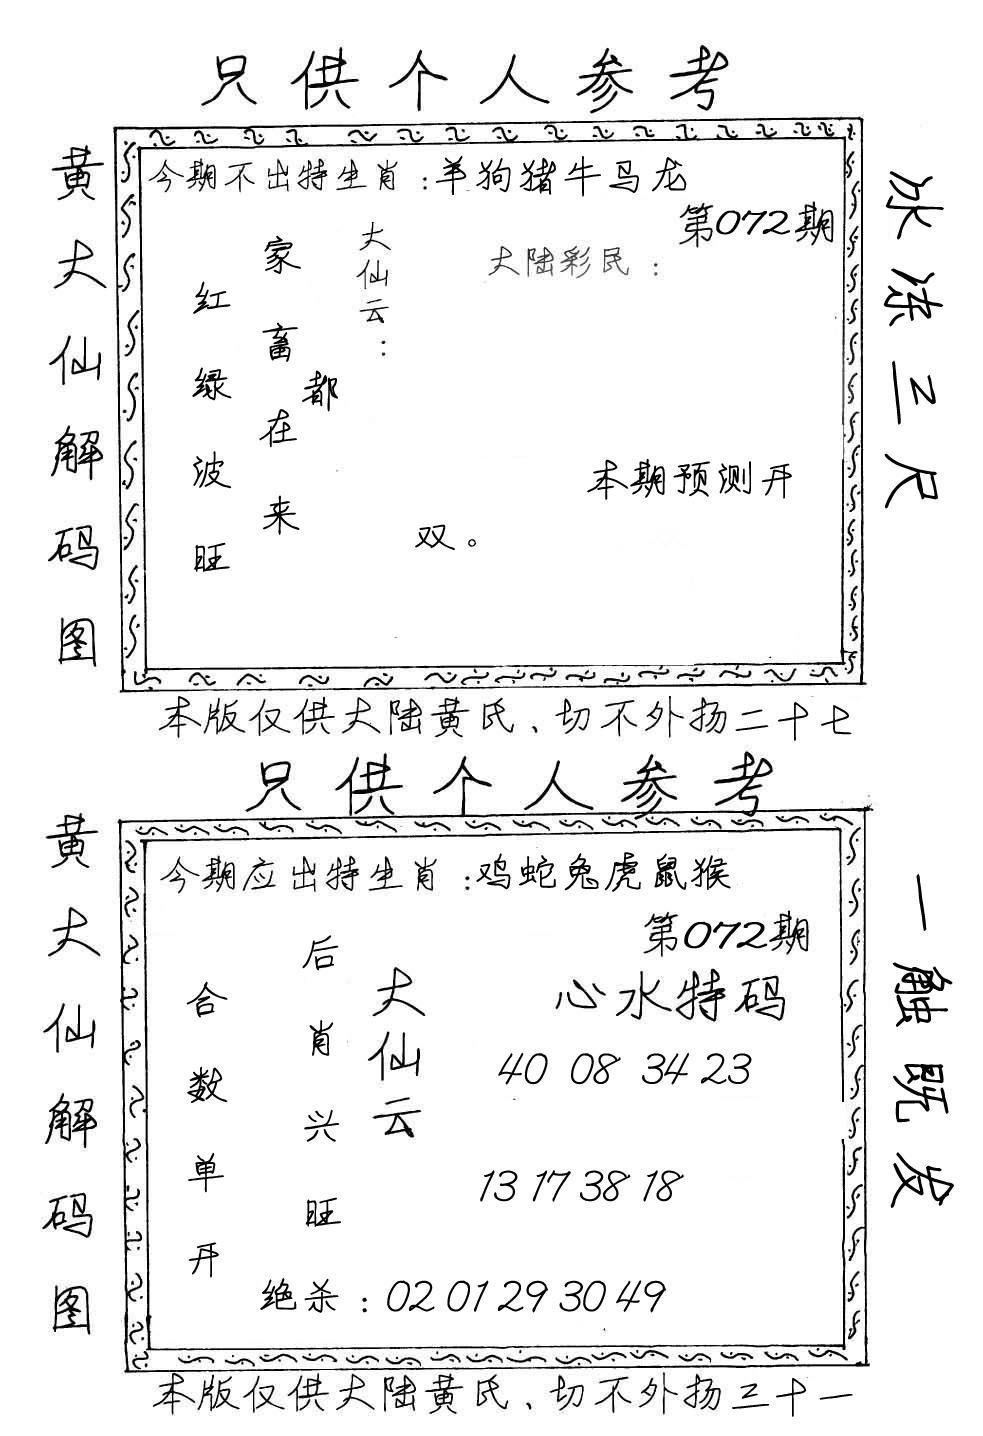 只供个人参考
黄大仙解码图
今期不出特生肖：羊狗猪牛马龙
第072期
大陆彩民：
大仙云：
家畜都在来
红绿波旺
本期预测开
双。
冰冻三尺
本版仅供大陆黄氏、切不外扬二十七
只供个人参考
黄大仙解码图
今期应出特生肖：鸡蛇兔虎鼠猴
第072期
心水特码
大仙云
后肖兴旺
合数单开
40 08 34 23
13 17 38 18
绝杀：02 01 29 30 49
一触既发
本版仅供大陆黄氏、切不外扬三十一